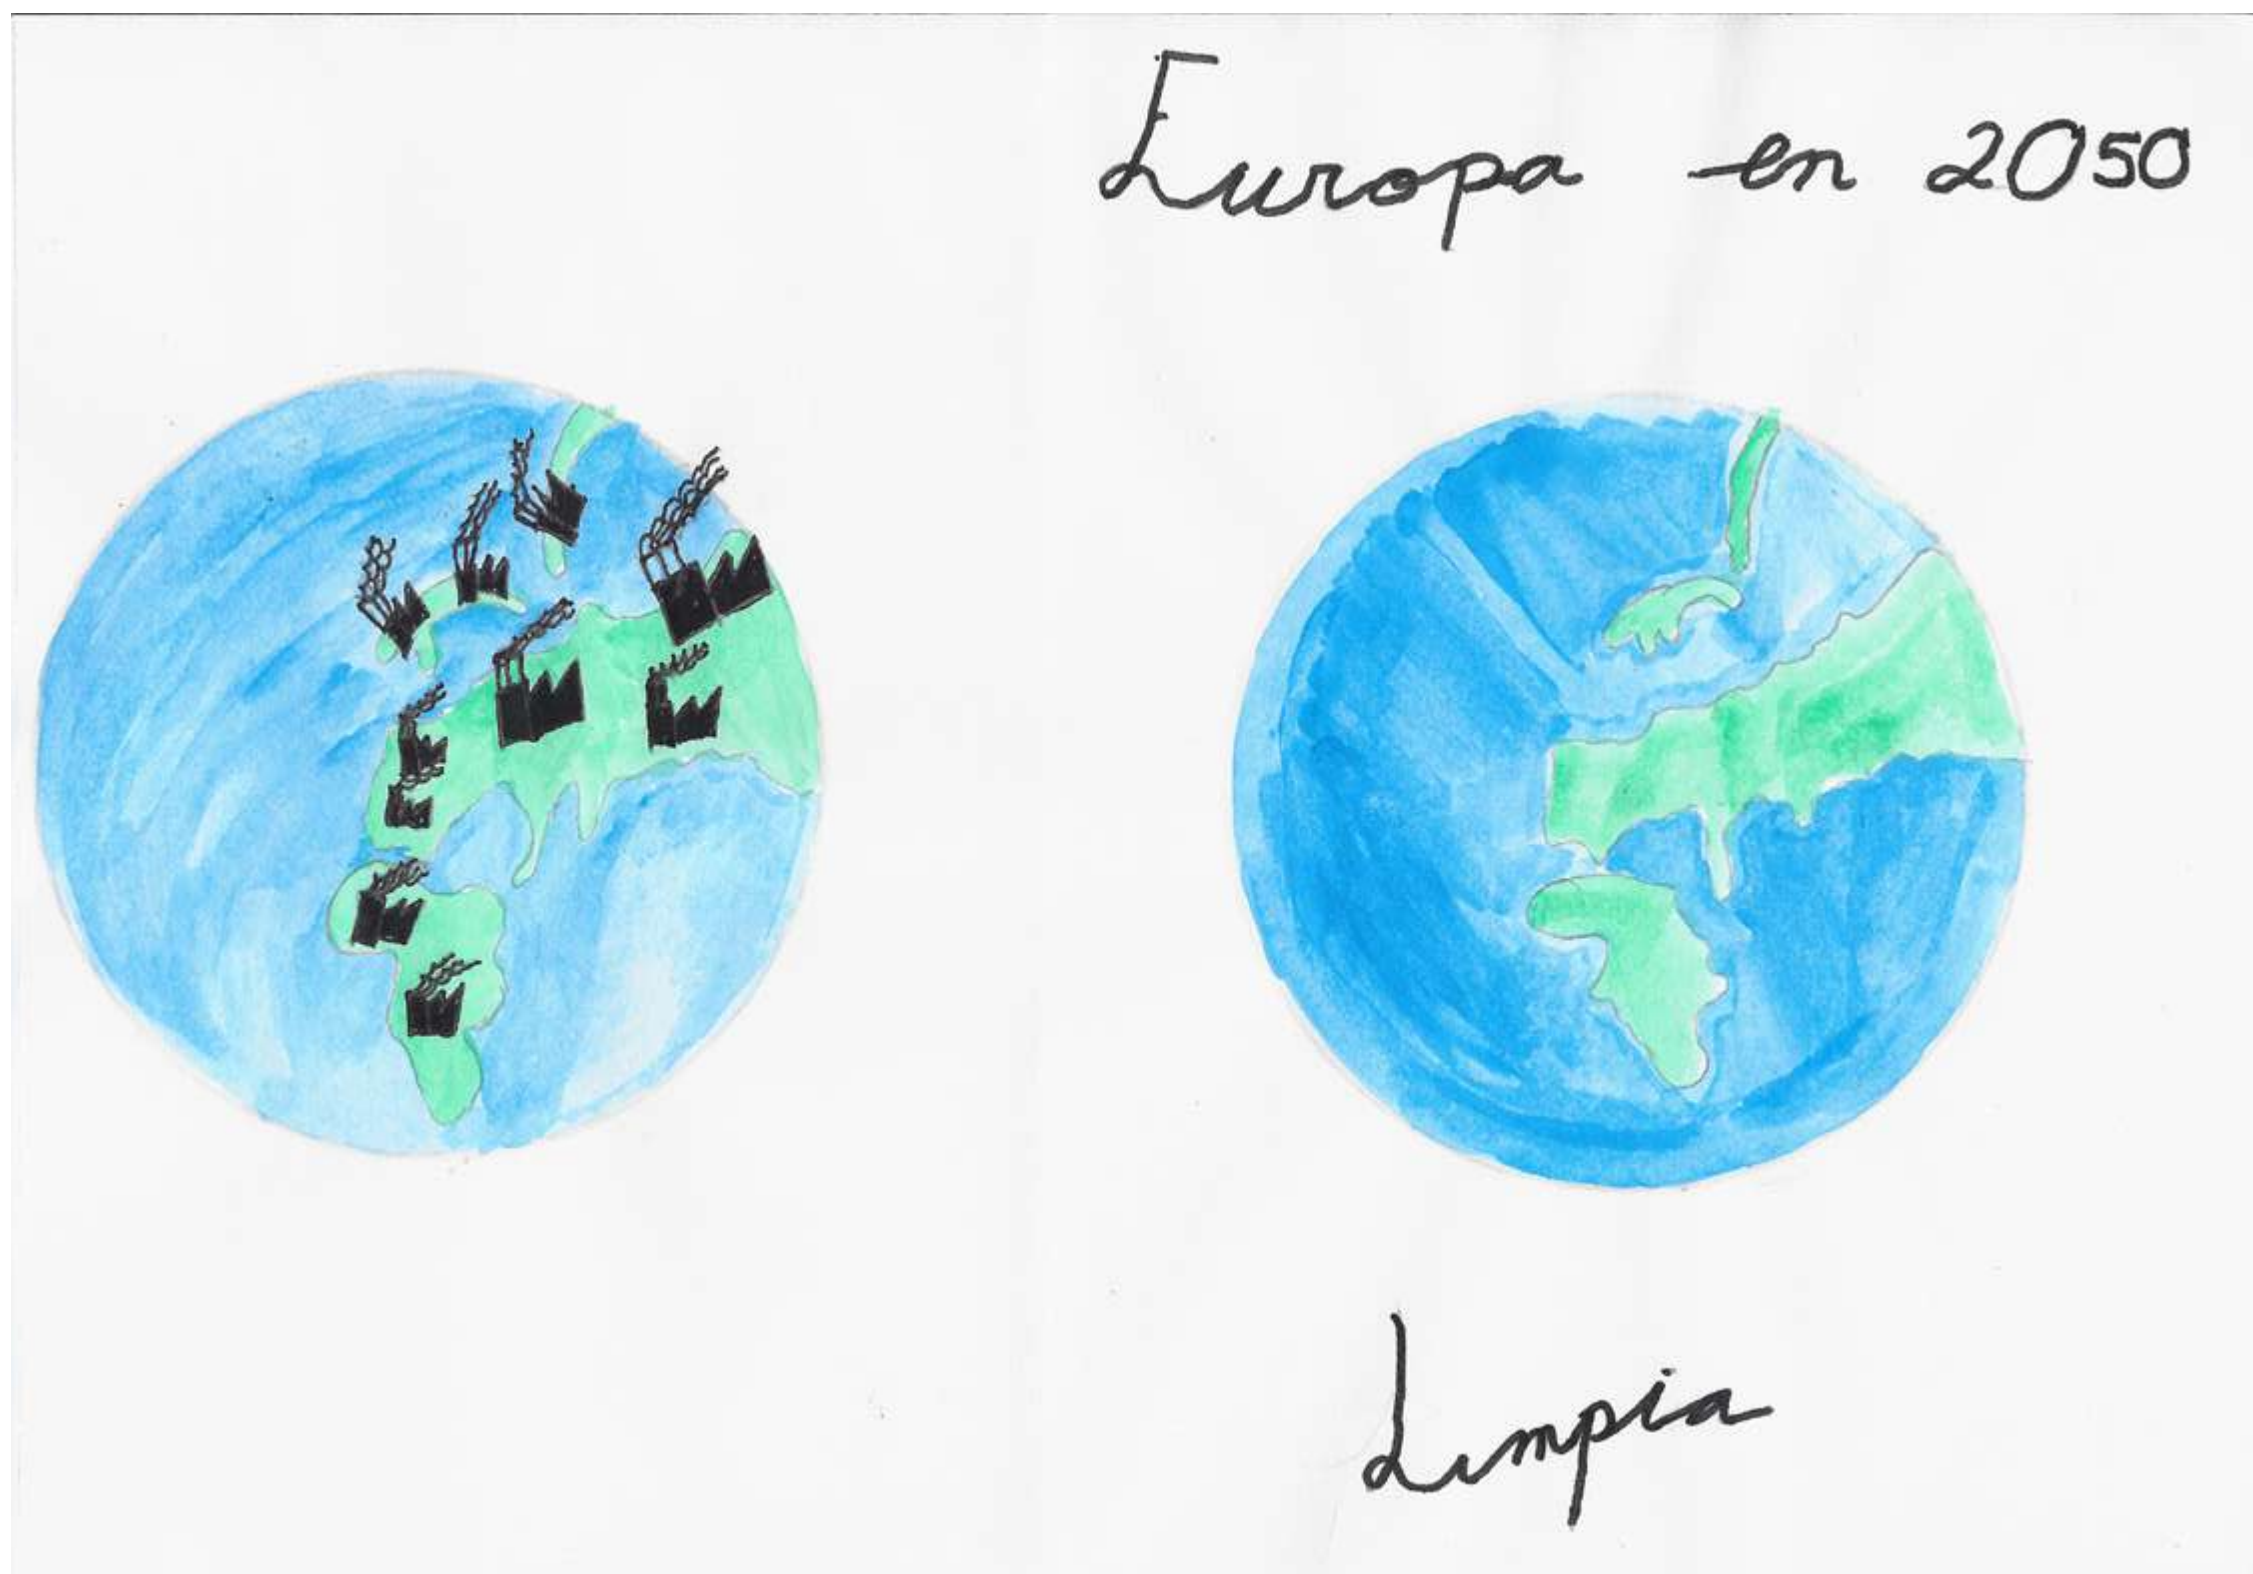 Europa en 2050
Limpia